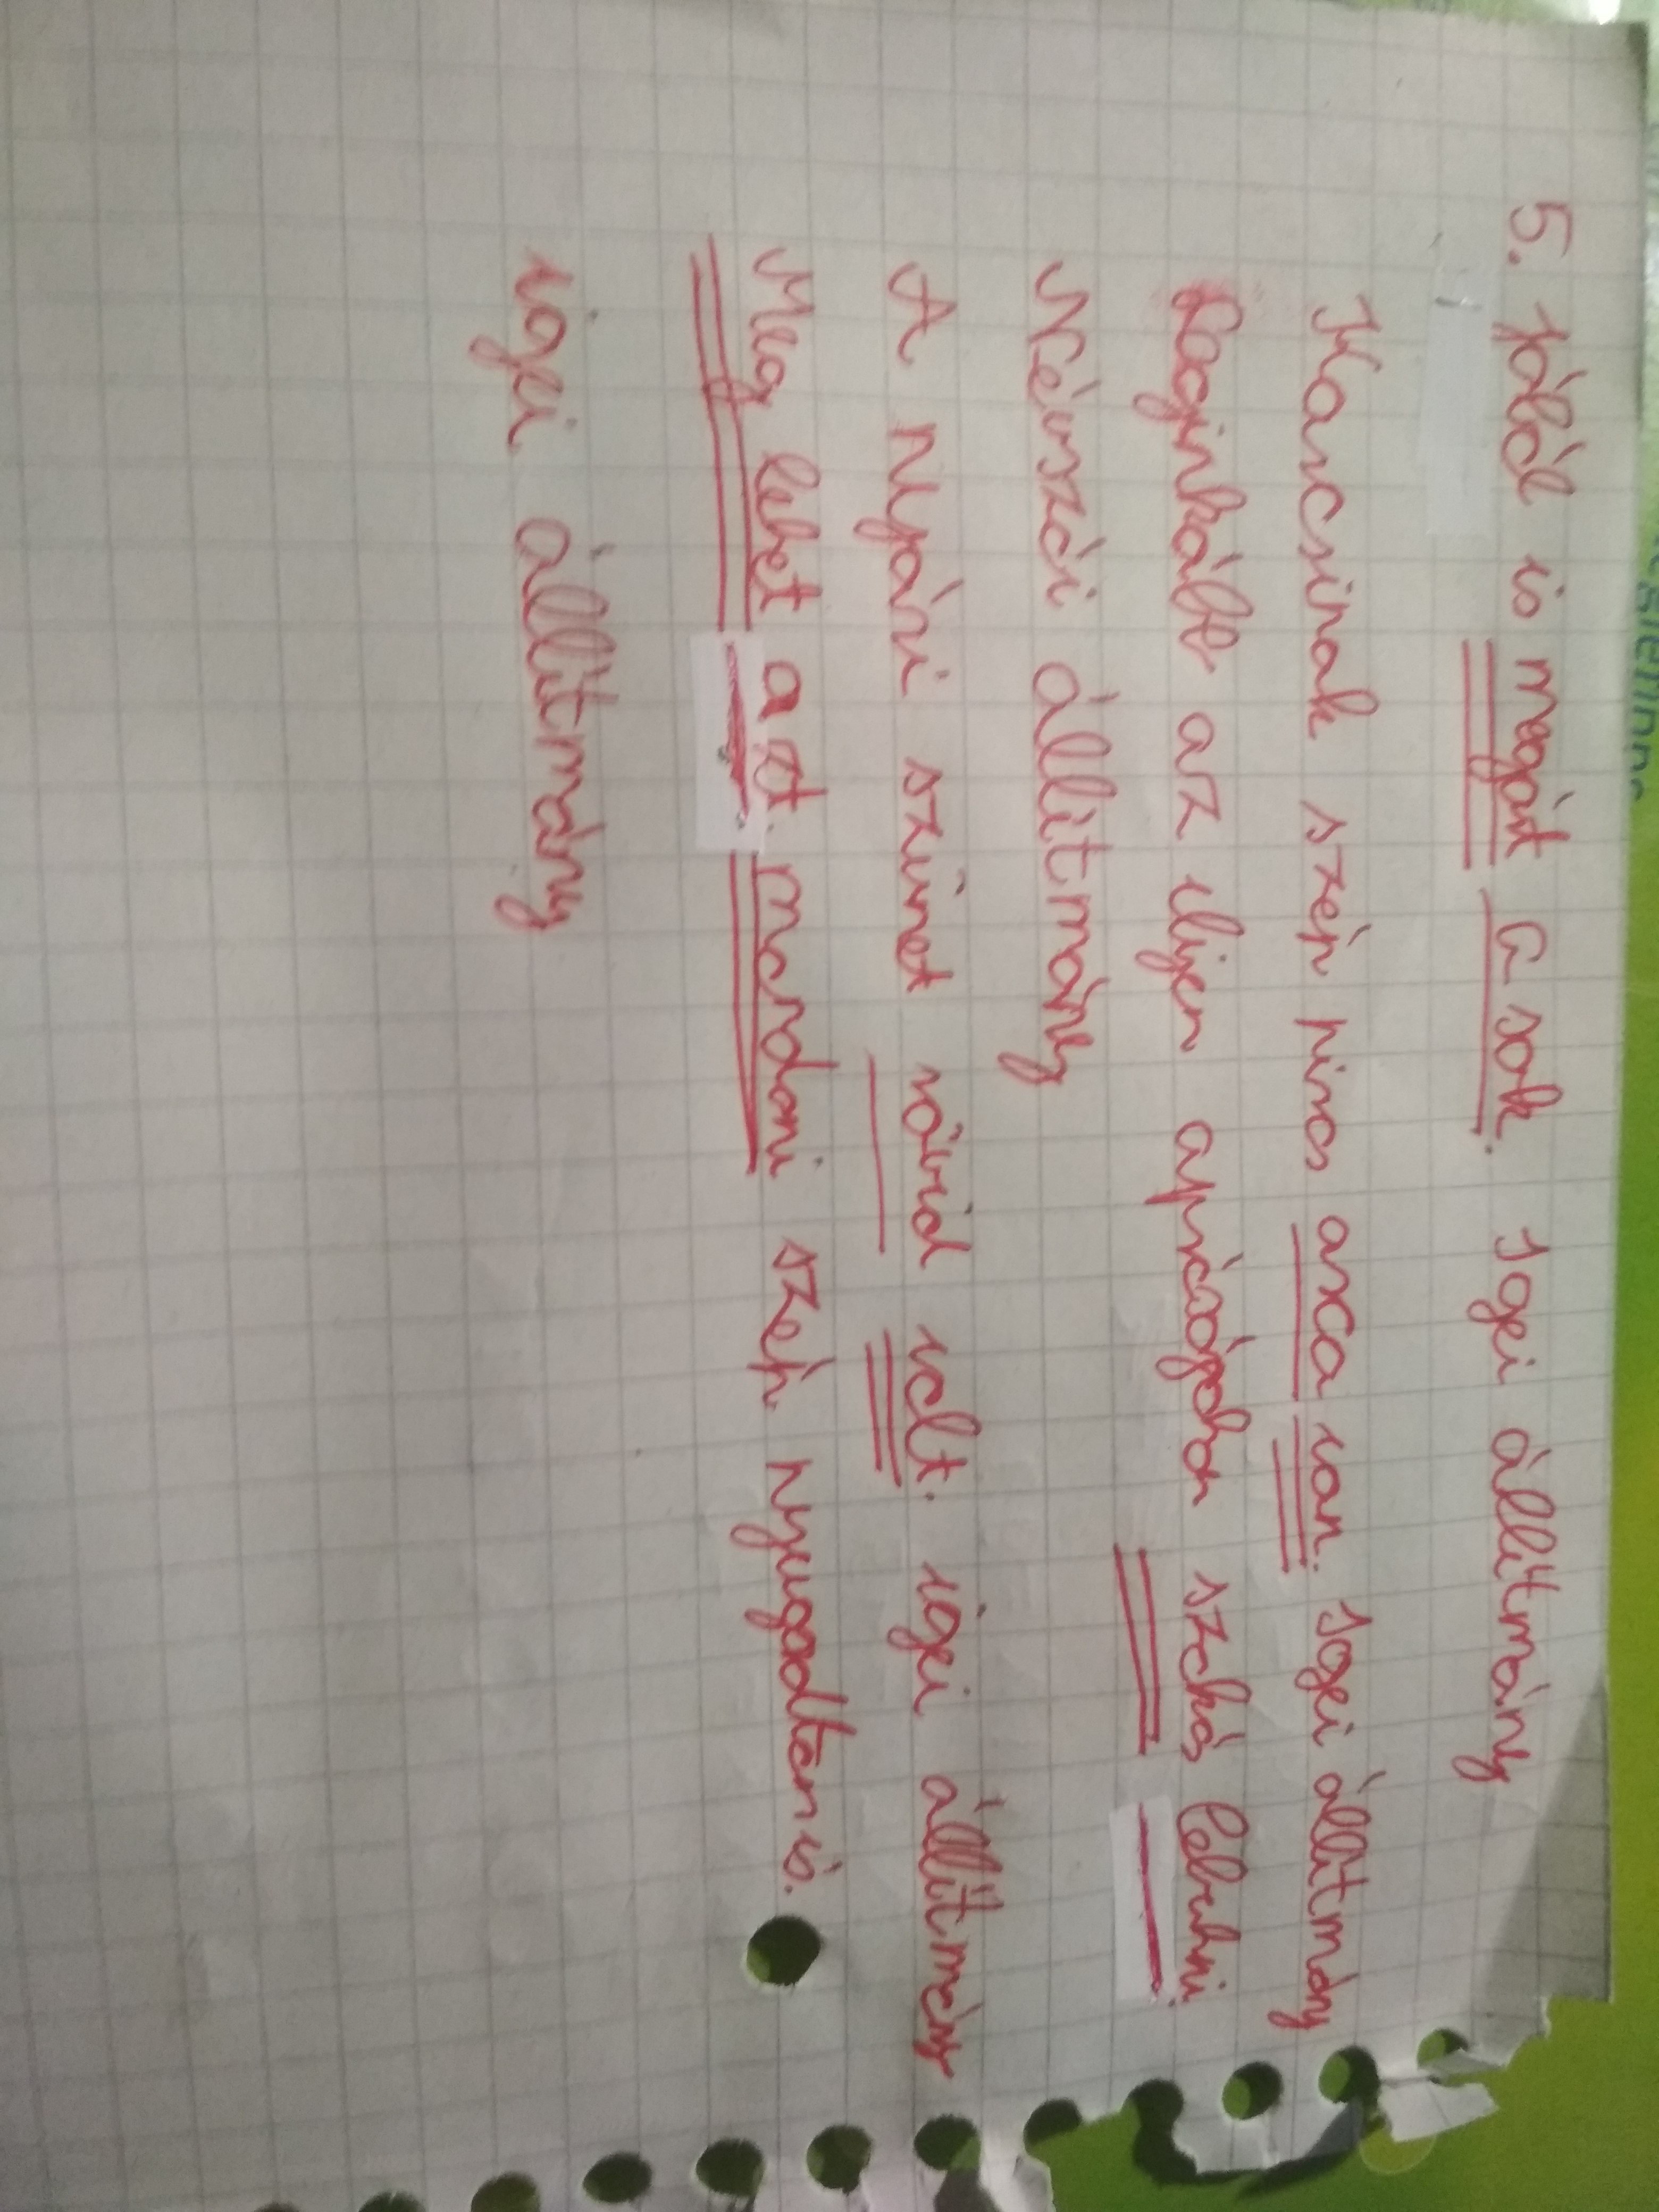 5. jóból is megárt a sok. Igei állítmány
Karcsinak szép piros arca van. Igei állítmány
Leginkább az ilyen apróságokon szokás lebukni.
Névszói állítmány
A nyári szünet rövid volt. igei állítmány
Meg lehet azt mondani szép nyugodtan is.
igei állítmány